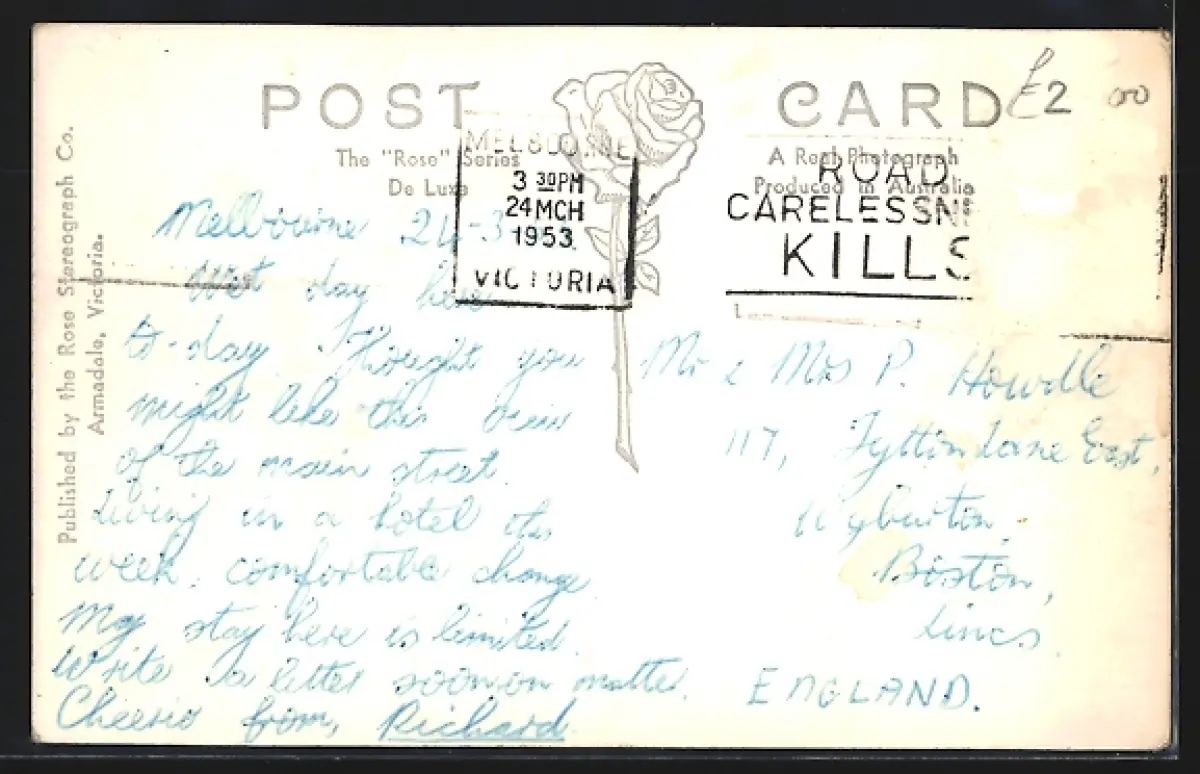 POST CARD
£2 00
The "Rose" Series
De Luxe
A Real Photograph
Produced in Australia
Published by the Rose Stereograph Co.
Armadale, Victoria.
MELBOURNE
3 30PM
24 MCH
1953
VICTORIA
ROAD
CARELESSNE
KILLS
Melbourne 24-3
Wet day here
to-day Thought you
might like this view
of the main street
Living in a hotel this
week, comfortable change
My stay here is limited.
Write a letter soon on matter.
Cheerio from, Richard
Mr & Mrs P. Howdle
117, Tytton Lane East,
Wyberton
Boston,
Lincs
ENGLAND.